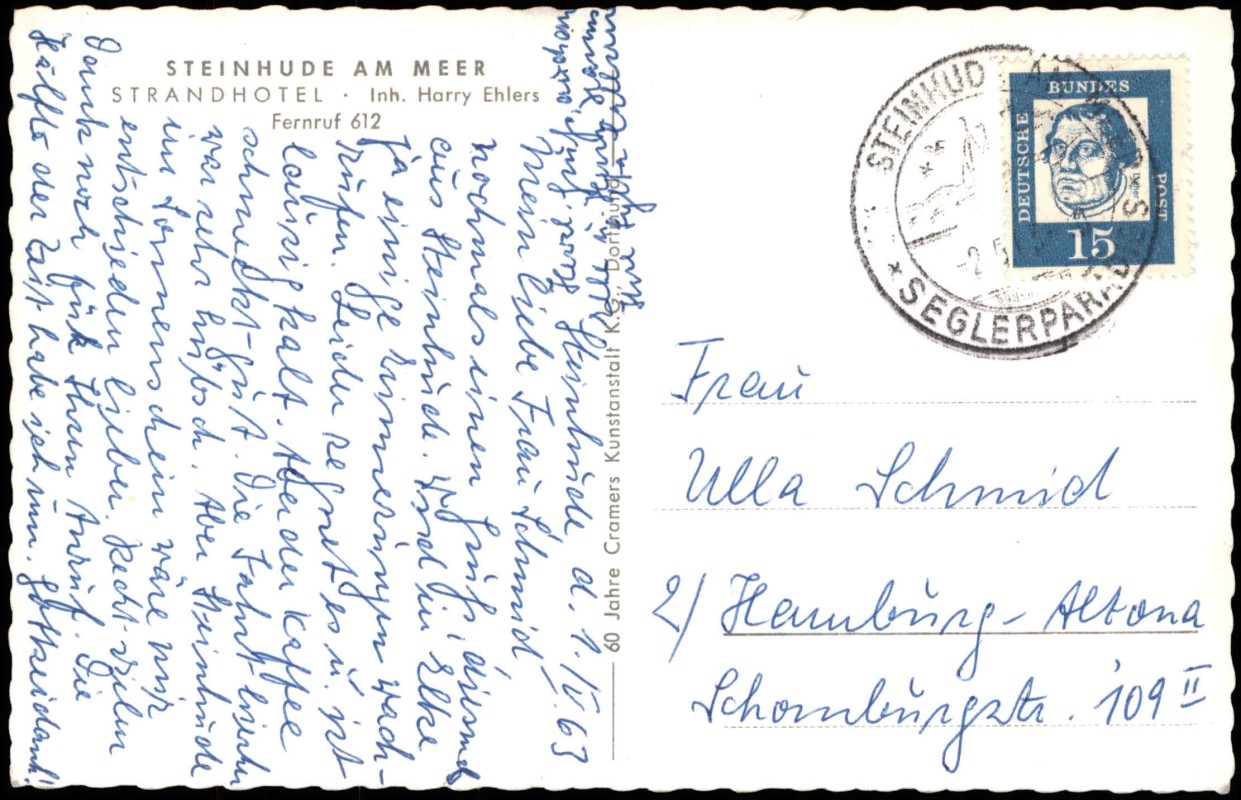 STEINHUDE AM MEER
STRANDHOTEL · Inh. Harry Ehlers
Fernruf 612
Steinhude d. 1. IV. 63
Meine liebe Frau Schmid
nochmals einen Gruß, diesmal
aus Steinhude. Wird in Elke
ja einige Erinnerungen wach-
rufen. Leider regnet es u. ist
lausig kalt. Aber der Kaffee
schmeckt gut. Die Fahrt hierher
war sehr hübsch. Aber Steinhude
im Sonnenschein wäre mir
entschieden lieber. Recht vielen
Dank noch für Ihren Anruf. Die
Hälfte der Zeit habe ich nun. Gottseidank!
Ihre
60 Jahre Cramers Kunstanstalt K.G., Dortmund
STEINHUDE AM
★ SEGLERPARADIES
DEUTSCHE
BUNDES
POST
Luther
15
Frau
Ulla Schmid
2/ Hamburg-Altona
Schomburgstr. 109 II